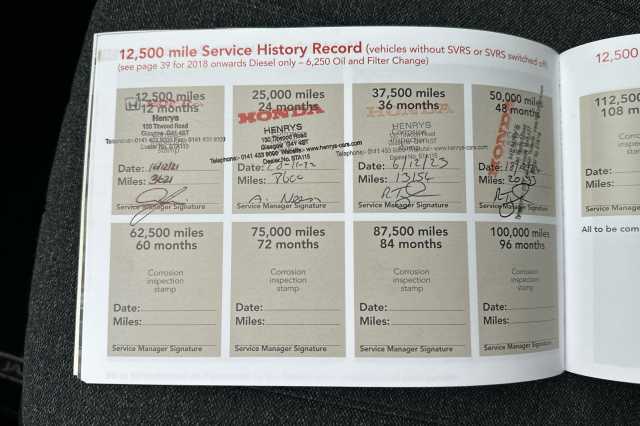 12,500 mile Service History Record (vehicles without SVRS or SVRS switched off)
(see page 39 for 2018 onwards Diesel only – 6,250 Oil and Filter Change)
12,500 miles
12 months
Henrys
155 Titwood Road
Glasgow G41 4BT
Date:
Miles: 3621
Service Manager Signature
25,000 miles
24 months
HONDA
HENRYS
Glasgow G41 4BT
Dealer No. STA115
Date:
Miles:
Service Manager Signature
37,500 miles
36 months
HONDA
HENRYS
Dealer No. STA115
Date: 6/12/23
Miles: 13154
Service Manager Signature
50,000 miles
48 months
HONDA
Date:
Miles:
Service Manager Signature
62,500 miles
60 months
Corrosion
inspection
stamp
Date:
Miles:
Service Manager Signature
75,000 miles
72 months
Corrosion
inspection
stamp
Date:
Miles:
Service Manager Signature
87,500 miles
84 months
Corrosion
inspection
stamp
Date:
Miles:
Service Manager Signature
100,000 miles
96 months
Corrosion
inspection
stamp
Date:
Miles:
Service Manager Signature
12,500
112,500
108 m
Service Manager
All to be com